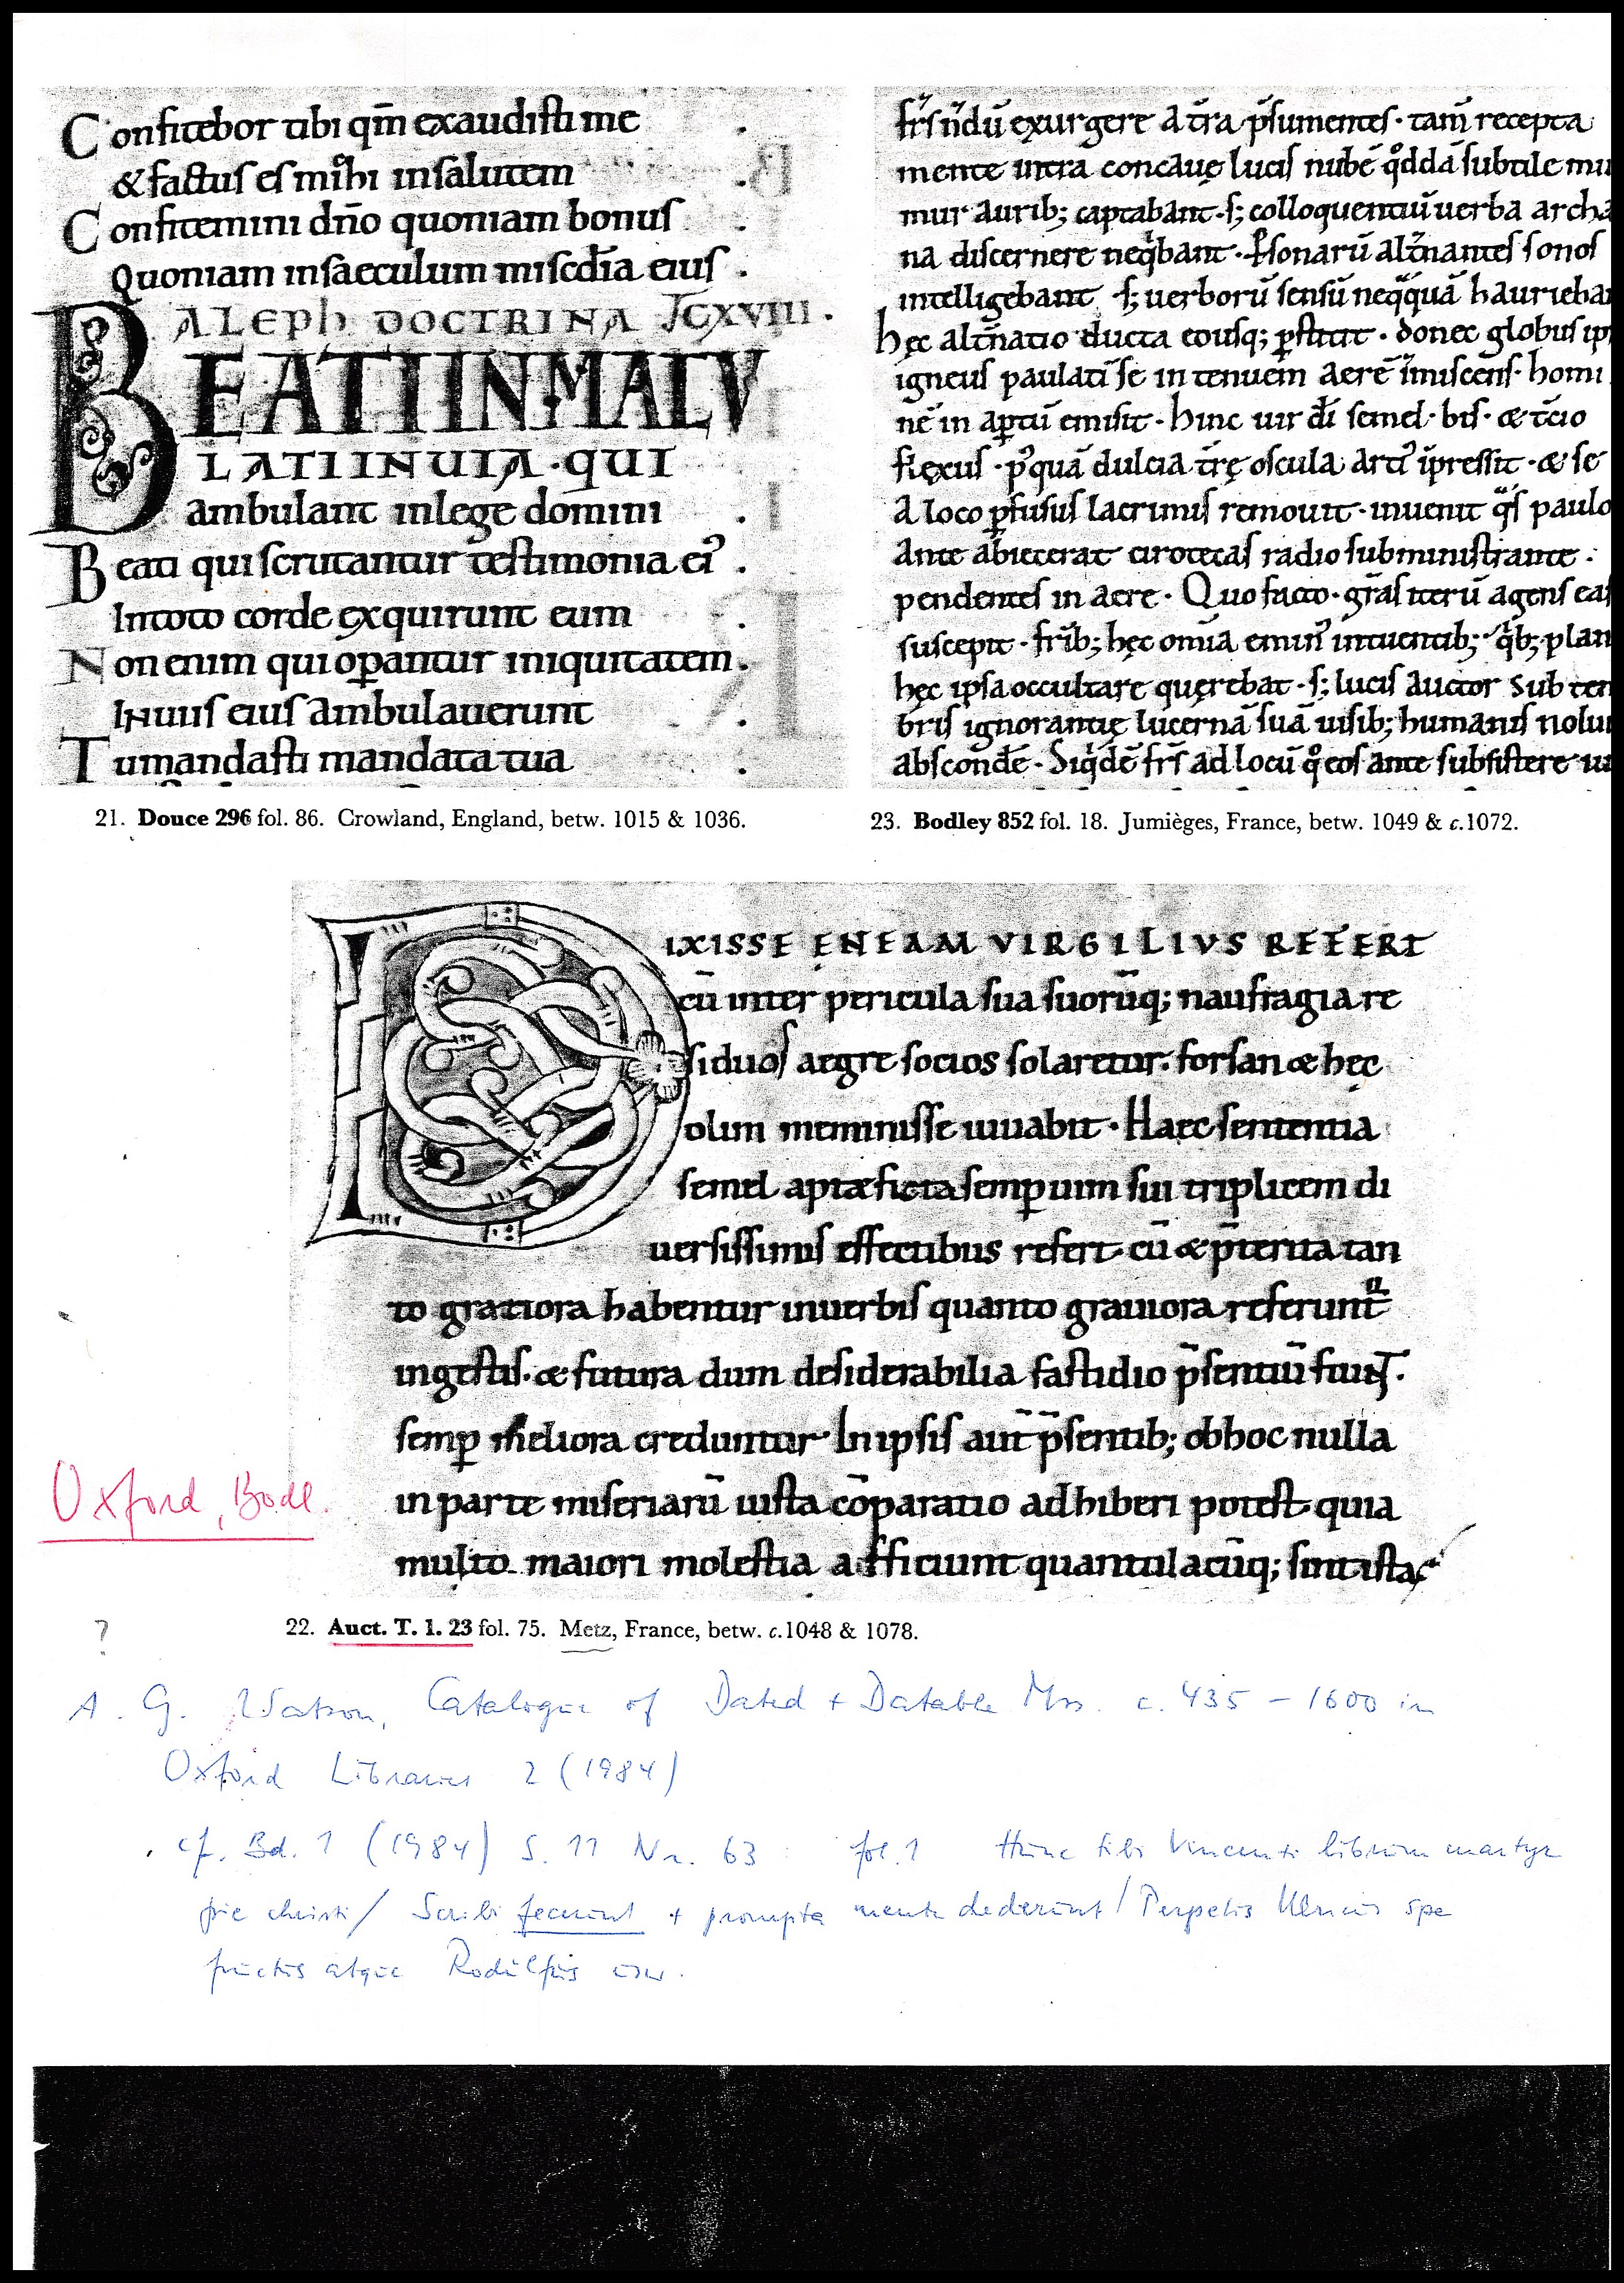 Confitebor tibi qm̄ exaudisti me
& factus es mihi insalutem
Confitemini dn̄o quoniam bonus
Quoniam insaeculum miscd̄ia eius.
ALEPH DOCTRINA
BEATI INMACV
LATI INUIA·QUI
ambulant inlege domini
Beati qui scrutantur testimonia ei᾽.
Intoto corde exquirunt eum
Non enim qui oꝑantur iniquitatem.
Inuiis eius ambulauerunt
Tu mandasti mandata tua
21. Douce 296 fol. 86. Crowland, England, betw. 1015 & 1036.
exurgere a tr̄a p̄sumentes· tam̄ recepta
mente intra concauę lucis nubē qͦddā subtile mu
mur aurib; captabant· s; colloquentiū uerba archa
na discernere neqͥbant· ꝑsonarū alt̄nantes sonos
intelligebant s; uerborū sensū neqͣquā hauriebar
hęc alt̄natio ducta eousq; ꝑstitit· donec globus ip
igneus paulatī se in tenuem aerē īmiscens· homi
nē in aꝑtū emisit· hinc uir dī semel· bis· & t̄cio
flexus· pͦquā dulcia t̄rę oscula īpressit· & se
a loco ꝑfusus lacrimis remouit· inuenit qͣs paulo
ante abiecerat cirotecas radio subministrante·
pendentes in aere· Quo facto· grās iterū agens eas
suscepit· fr̄ib; hęc om̄ia intuentib; qͥb; plan
hęc ipsa occultare quęrebat· s; lucis auctor sub ten
bris ignorantię lucernā suā uisib; humanis nolui
absconde᷒· Siqͥdē fr̄s ad locū qͦ eos ante subsistere iu
23. Bodley 852 fol. 18. Jumièges, France, betw. 1049 & c.1072.
DIXISSE ENEAM VIRGILIVS REFERT
cū inter pericula sua suorūq; naufragia re
siduos aegre socios solaretur· forsan & hęc
olim meminisse iuuabit· Haec sententia
semel apte ficta semꝑ uim sui triplicem di
uersissimis effectibus refert· cū & p̄terita tan
to gratiora habentur inuerbis quanto grauiora referunt̄
ingestis. & futura dum desiderabilia fastidio p̄sentiū fiunt.
semꝑ meliora creduntur· In ipsis aut̄ p̄sentib; obhoc nulla
in parte miseriarū iusta cōparatio adhiberi potest quia
multo maiori molestia afficiunt quantulacūq; sint ista
Oxford, Bodl.
22. Auct. T. 1. 23 fol. 75. Metz, France, betw. c.1048 & 1078.
?
A. G. Watson, Catalogue of Dated + Datable Mss. c. 435 – 1600 in
Oxford Libraries 2 (1984)
cf. Bd. 1 (1984) S. 11 Nr. 63 : fol. 1 Hunc tibi Vincenti librum martyr
pie christi / Scribi fecerunt + prompta mente dederunt / Perpetis Ulricus spe
fructus atque Rodulfus usu.